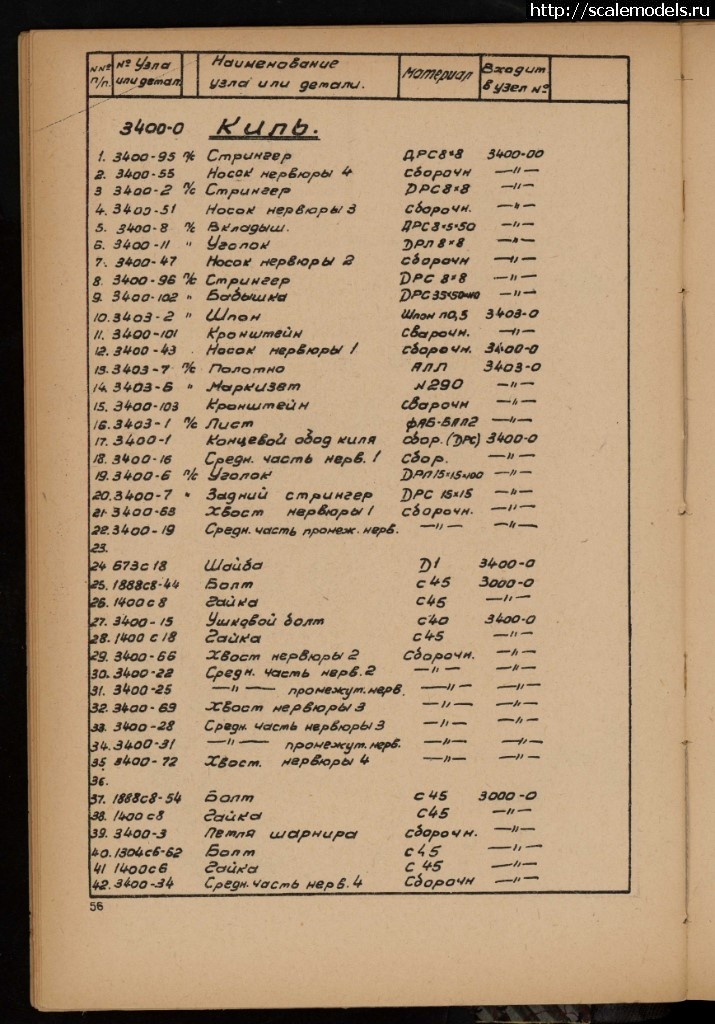 http://scalemodels.ru
№№ п/п. № Узла или детал. Наименование узла или детали. Материал Входит в узел №
3400-0 Киль.
1. 3400-95 п/с Стрингер ДРС 8×8 3400-00
2. 3400-55 Носок нервюры 4 сборочн —"—
3 3400-2 п/с Стрингер DPC 8×8 —"—
4. 3400-51 Носок нервюры 3 сборочн. —"—
5. 3400-8 п/с Вкладыш. ДРС 8×5×50 —"—
6. 3400-11 " Уголок DРЛ 8×8 —"—
7. 3400-47 Носок нервюры 2 сборочн —"—
8. 3400-96 п/с Стрингер DPC 8×8 —"—
9. 3400-102 " Бобышка DPC —"—
10. 3403-2 " Шпон Шпон п0,5 3403-0
11. 3400-101 Кронштейн сварочн. —"—
12. 3400-43 Носок нервюры 1 сборочн. 3400-0
13. 3403-7 п/с Полотно АЛЛ 3403-0
14. 3403-6 " Маркизет №290 —"—
15. 3400-103 Кронштейн сварочн —"—
16. 3403-1 п/с Лист —"—
17. 3400-1 Концевой обод киля сбор. (DPC) 3400-0
18. 3400-16 Средн. часть нерв. 1 сбор. —"—
19. 3400-6 п/с Уголок DРЛ 15×15×100 —"—
20. 3400-7 " Задний стрингер DPC 15×15 —"—
21. 3400-63 Хвост нервюры 1 сборочн. —"—
22. 3400-19 Средн. часть промеж. нерв. —"— —"—
23.
24 673с18 Шайба D1 3400-0
25. 1888с8-44 Болт с45 3000-0
26. 1400с8 Гайка с45 —"—
27. 3400-15 Ушковой болт с40 3400-0
28. 1400с18 Гайка с45 —"—
29. 3400-66 Хвост нервюры 2 Сборочн. —"—
30. 3400-22 Средн. часть нерв. 2 —"— —"—
31. 3400-25 —"— промежут. нерв. —"— —"—
32. 3400-69 Хвост нервюры 3 —"— —"—
33. 3400-28 Средн. часть нервюры 3 —"— —"—
34. 3400-31 —"— промежут. нерв. —"— —"—
35 3400-72 Хвост. нервюры 4 —"— —"—
36.
37. 1888с8-54 Болт с 45 3000-0
38. 1400с8 Гайка с45 —"—
39. 3400-3 Петля шарнира сборочн. —"—
40. 1304с6-62 Болт с45 —"—
41 1400с6 Гайка с 45 —"—
42. 3400-34 Средн. часть нерв. 4 Сборочн —"—
56